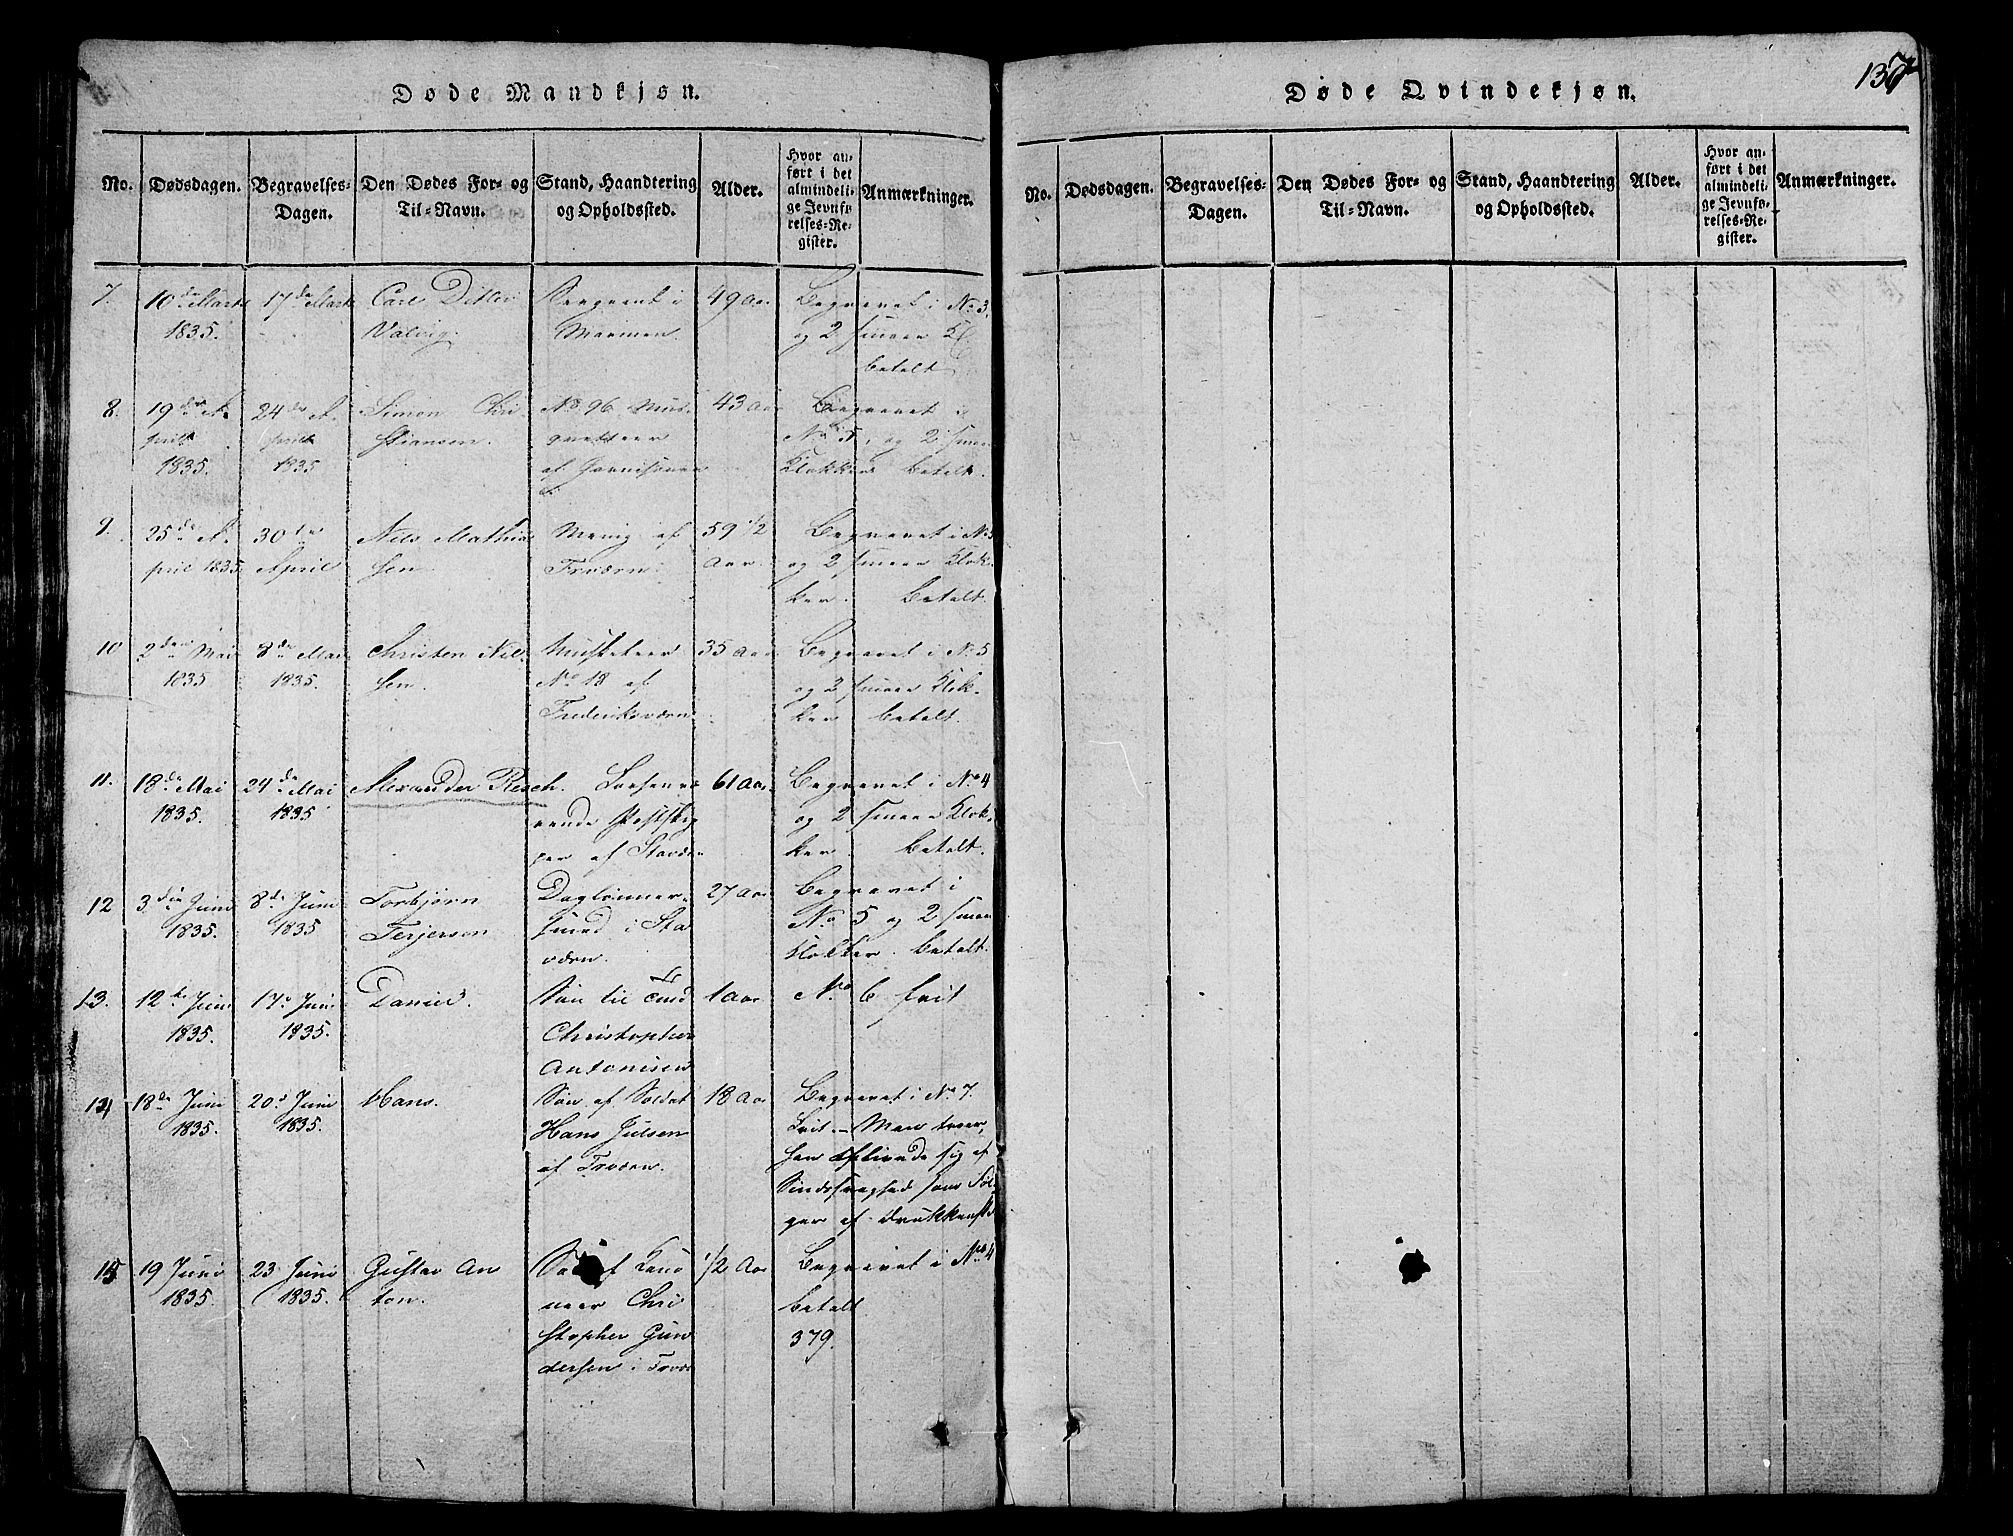 Døde Mandkjøn.
No.
Dødsdagen.
Begravelses-
Dagen.
Den Dødes For- og
Til-Navn.
Stand, Haandtering
og Opholdssted.
Alder.
Hvor an-
ført i det
almindeli-
ge Jevnfø-
relses-Re-
gister.
Anmærkninger.
7.
10de Marts
1835.
17de Marts
Carl Ditlev
Valvig.
Sergeant i
49 Aar
Begravet i No 3.
og 2 smaae Kl
betalt
8.
19de A-
pril
1835.
24de A-
pril
1835
Simon Chri
stiansen.
No 96 Mus-
quetteer
af Garnisonen
43 Aar
Begravet i
No 5, og 2 smaae
Klokker betalt.
9.
25de A-
pril 1835.
30te
April
Nils Mathia
sen.
Menig af
Frværn.
59 1/2
Aar.
Begravet i No 5
og 2 smaae Klok-
ker. Betalt.
10
2den Mai
1835
8de Mai
1835.
Christen Nil-
sen.
Musketeer
No 18 af
Frederiksværn
35 Aar
Begravet i No 5
og 2 smaae Klok-
ker betalt.
11.
18de Mai
1835.
24de Mai
1835
Alexander Resch.
af Staværn
61 Aar.
Begravet i No 4
og 2 smaae Klok-
ker. Betalt.
12
3die Juni
1835.
8de Juni
1835
Torbjørn
Terjersen
Dagleiner-
smed i Sta
værn.
27 Aar
Begravet i
No 5 og 2 smaae
Klokker. betalt.
13.
12te Juni
1835.
17de Juni
1835.
Daniel.
Søn til
Christopher
Antonisen
1 Aar
No 6 frit
14
18de Juni
1835.
20de Juni
1835.
Hans.
Søn af Soldat
Hans Julsen
af Frværn.
18 Aar
Begravet i No 7.
frit. – Man troer,
han aflivede sig af
Sindssvaghed som Føl-
ger af drukkensk
15
19 Juni
1835.
23 Juni
1835.
Gustav An
ton.
Søn af Kano
neer Chri
stopher Gun
dersen i Frvær
1/2 Aar
Begravet i No 4
betalt
379.
Døde Qvindekjøn.
137
No.
Dødsdagen.
Begravelses-
Dagen.
Den Dødes For- og
Til-Navn.
Stand, Haandtering
og Opholdssted.
Alder.
Hvor an-
ført i det
almindeli-
ge Jevnfø-
relses-Re-
gister.
Anmærkninger.